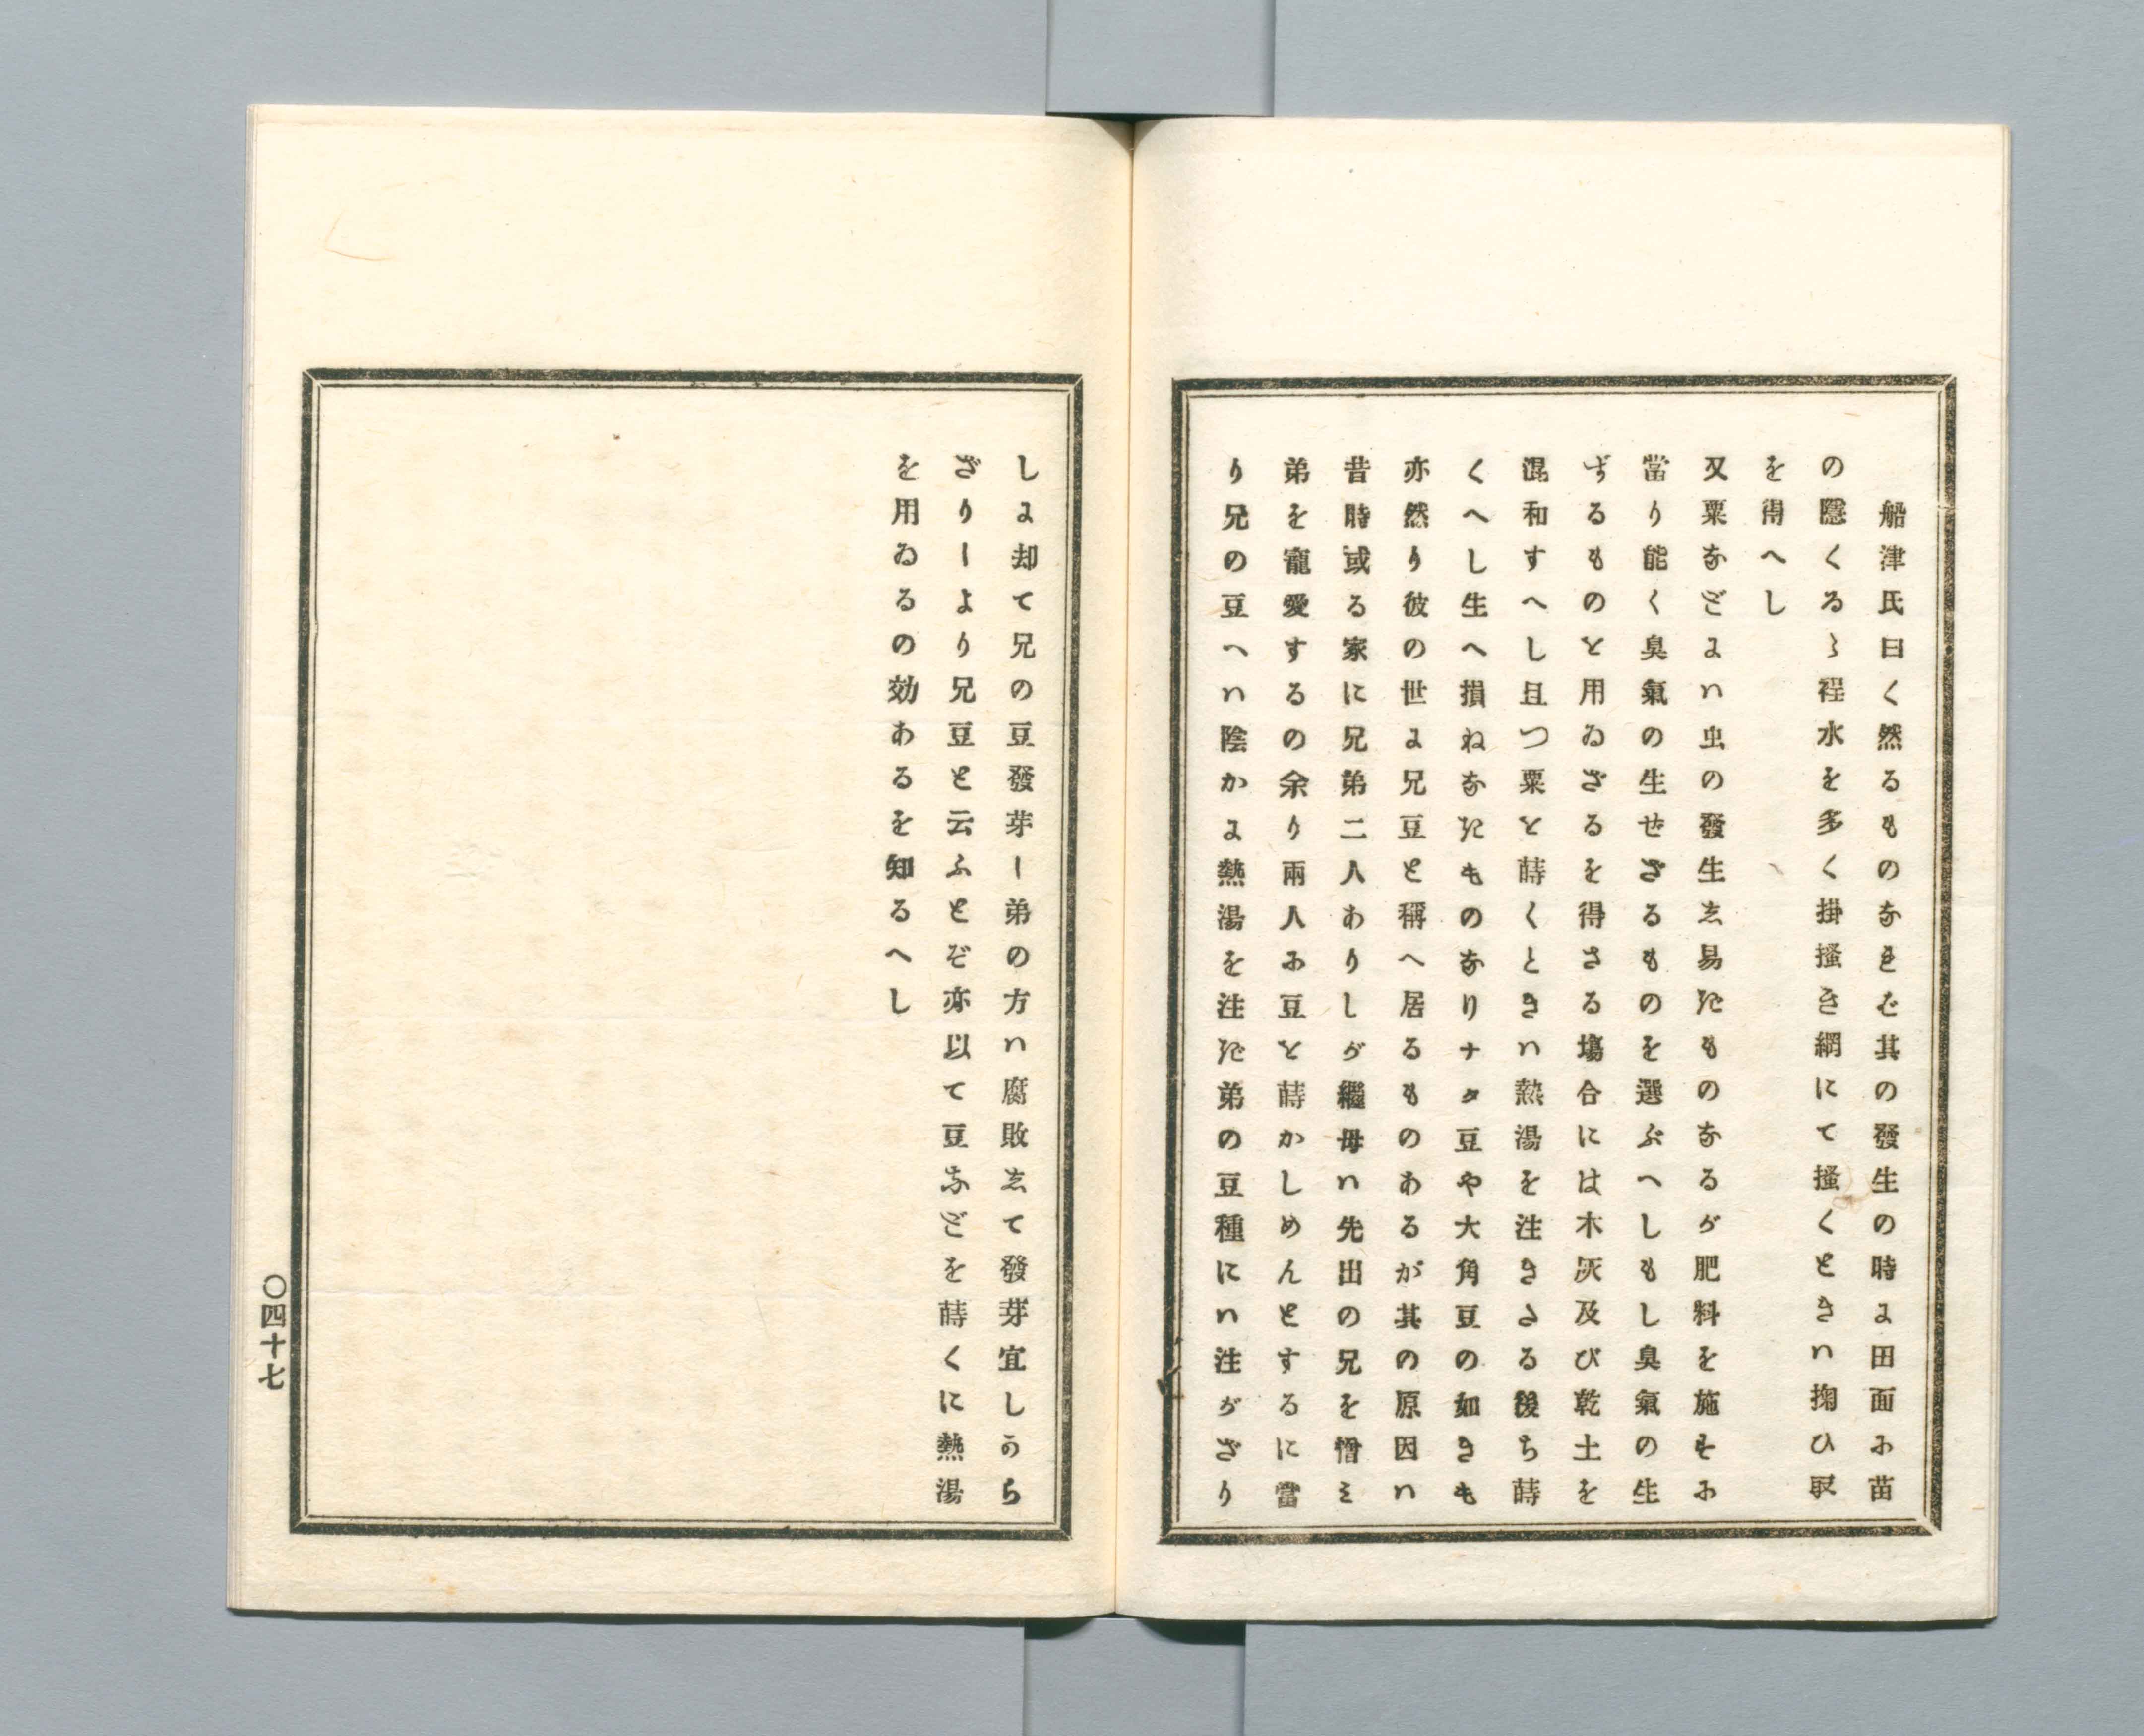 船津氏曰く然るものなれば其の發生の時に田面に苗
の隱くるゝ程水を多く掛搔き網にて搔くときハ掬ひ取
を得へし
又粟などにハ虫の發生し易たものなるが肥料を施すに
當り能く臭氣の生せざるものを選ぶへしもし臭氣の生
ずるものを用ゐざるを得さる塲合には木灰及び乾土を
混和すへし且つ粟を蒔くときハ熱湯を注きさる後ち蒔
くへし生へ損ねなだものなりナタ豆や大角豆の如きも
亦然り彼の世に兄豆と稱へ居るものあるが其の原因ハ
昔時或る家に兄弟二人ありしが繼母ハ先出の兄を憎ミ
弟を寵愛するの余り兩人に豆を蒔かしめんとするに當
り兄の豆へハ陰かに熱湯を注だ弟の豆種にハ注がざり
しに却て兄の豆發芽し弟の方ハ腐敗して發芽宜しから
ざりしより兄豆と云ふとぞ亦以て豆などを蒔くに熱湯
を用ゐるの効あるを知るへし
〇四十七